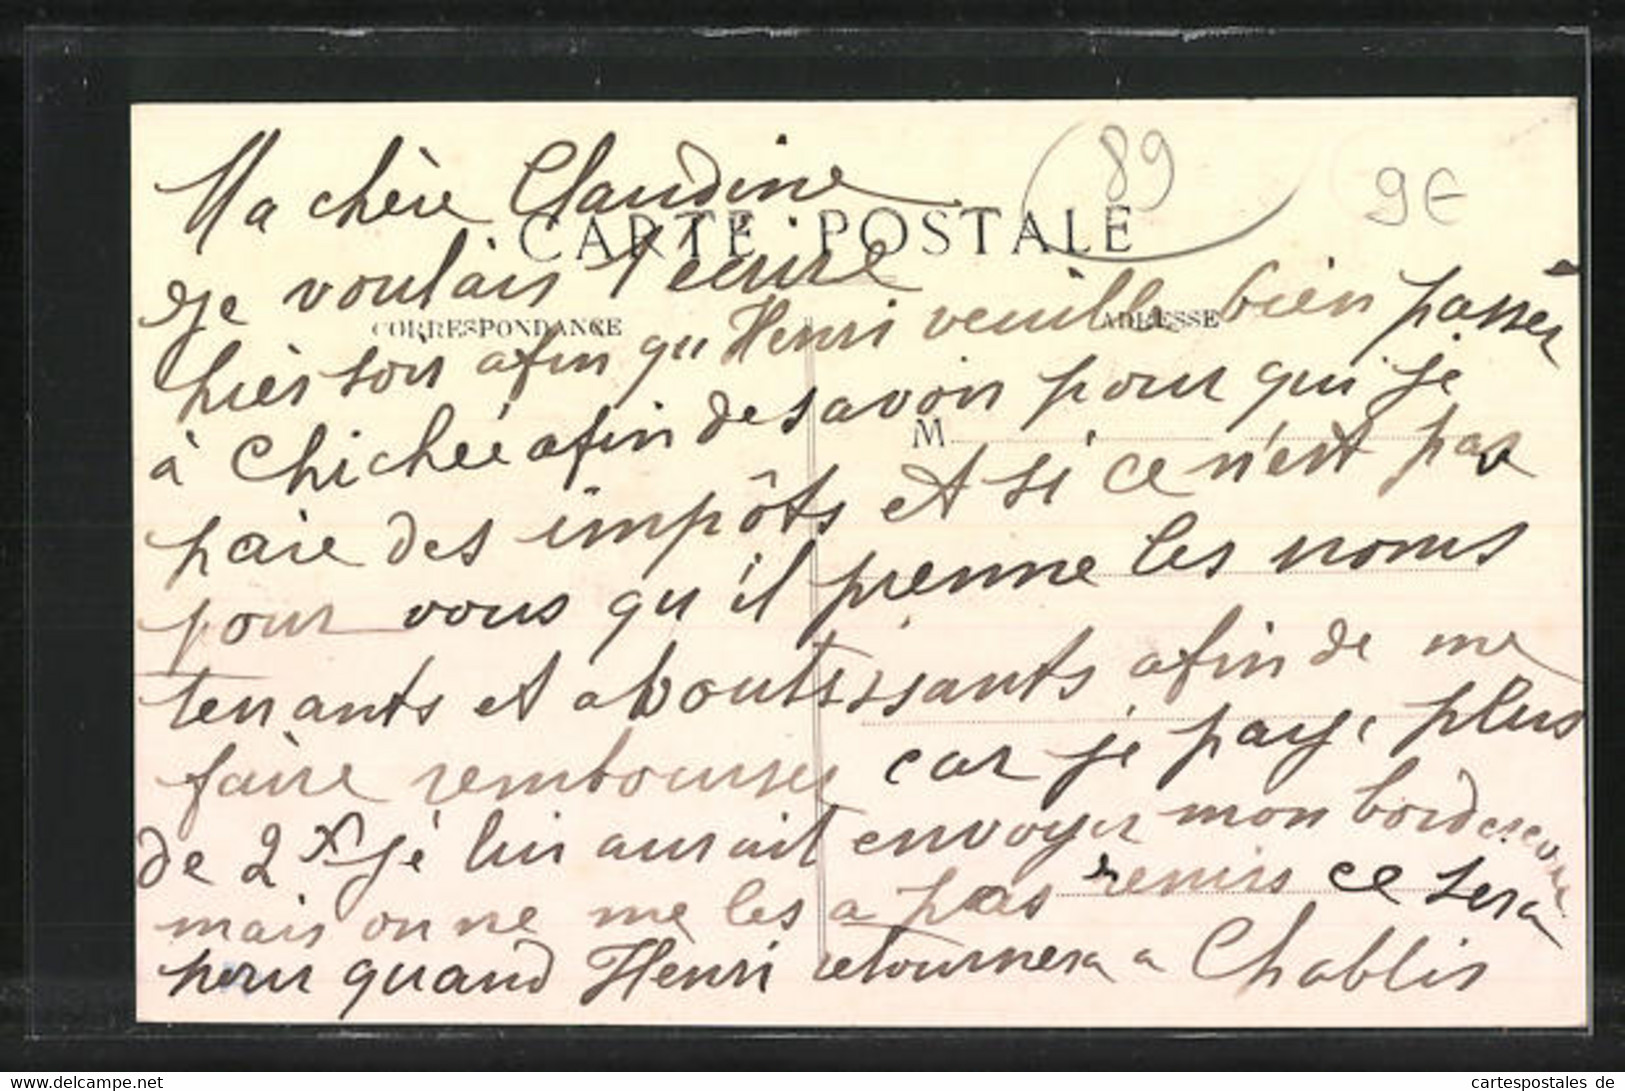 Ma chère Claudine
89
9€
CARTE POSTALE
je voulais t'écrire
CORRESPONDANCE
ADRESSE
hièr soir afin qu Henri veuille bien passer
à Chichée afin de savoir pour qui je
M
paie des impôts et si ce n'est pas
pour vous qu'il prenne les noms
tenants et aboutissants afin de me
faire rembourser car je paye plus
de 2 je lui aurait envoyer mon bordereau
mais on ne me les a pas remis ce sera
pour quand Henri retournera a Chablis
www.delcampe.net
cartespostales de